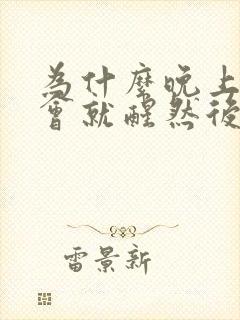 為什麼晚上
會就醒然後
雷景新